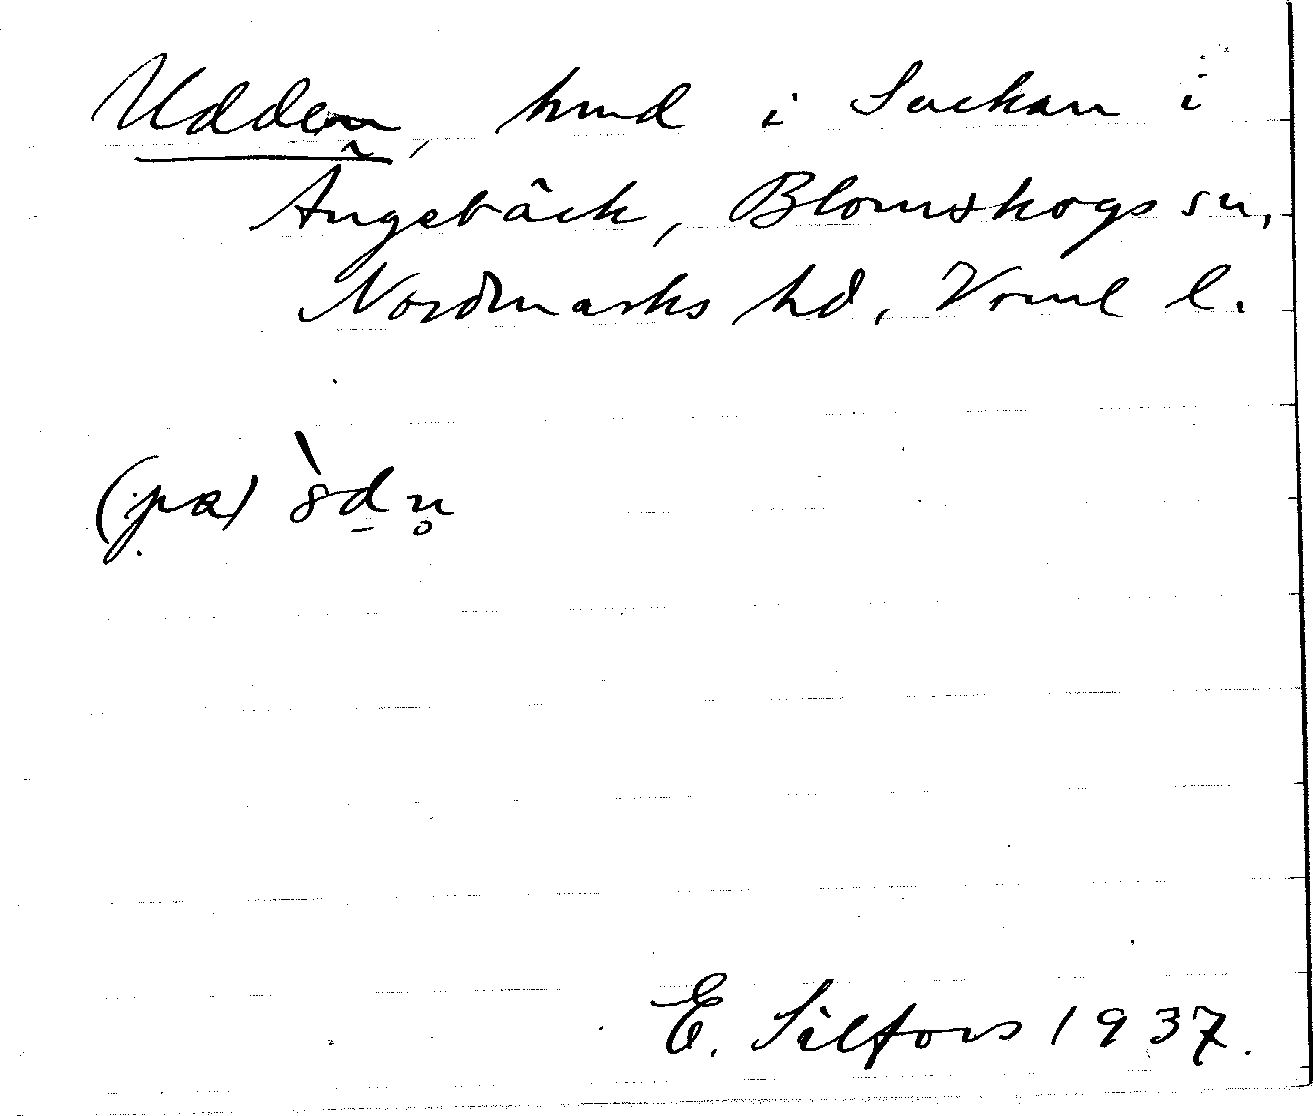 Udden, hmd i Suckan i
Ängebäck, Blomskogs sn,
Nordmarks hd, Vrml l.
(pa) ̀8dn̥
E. Silfors 1937.